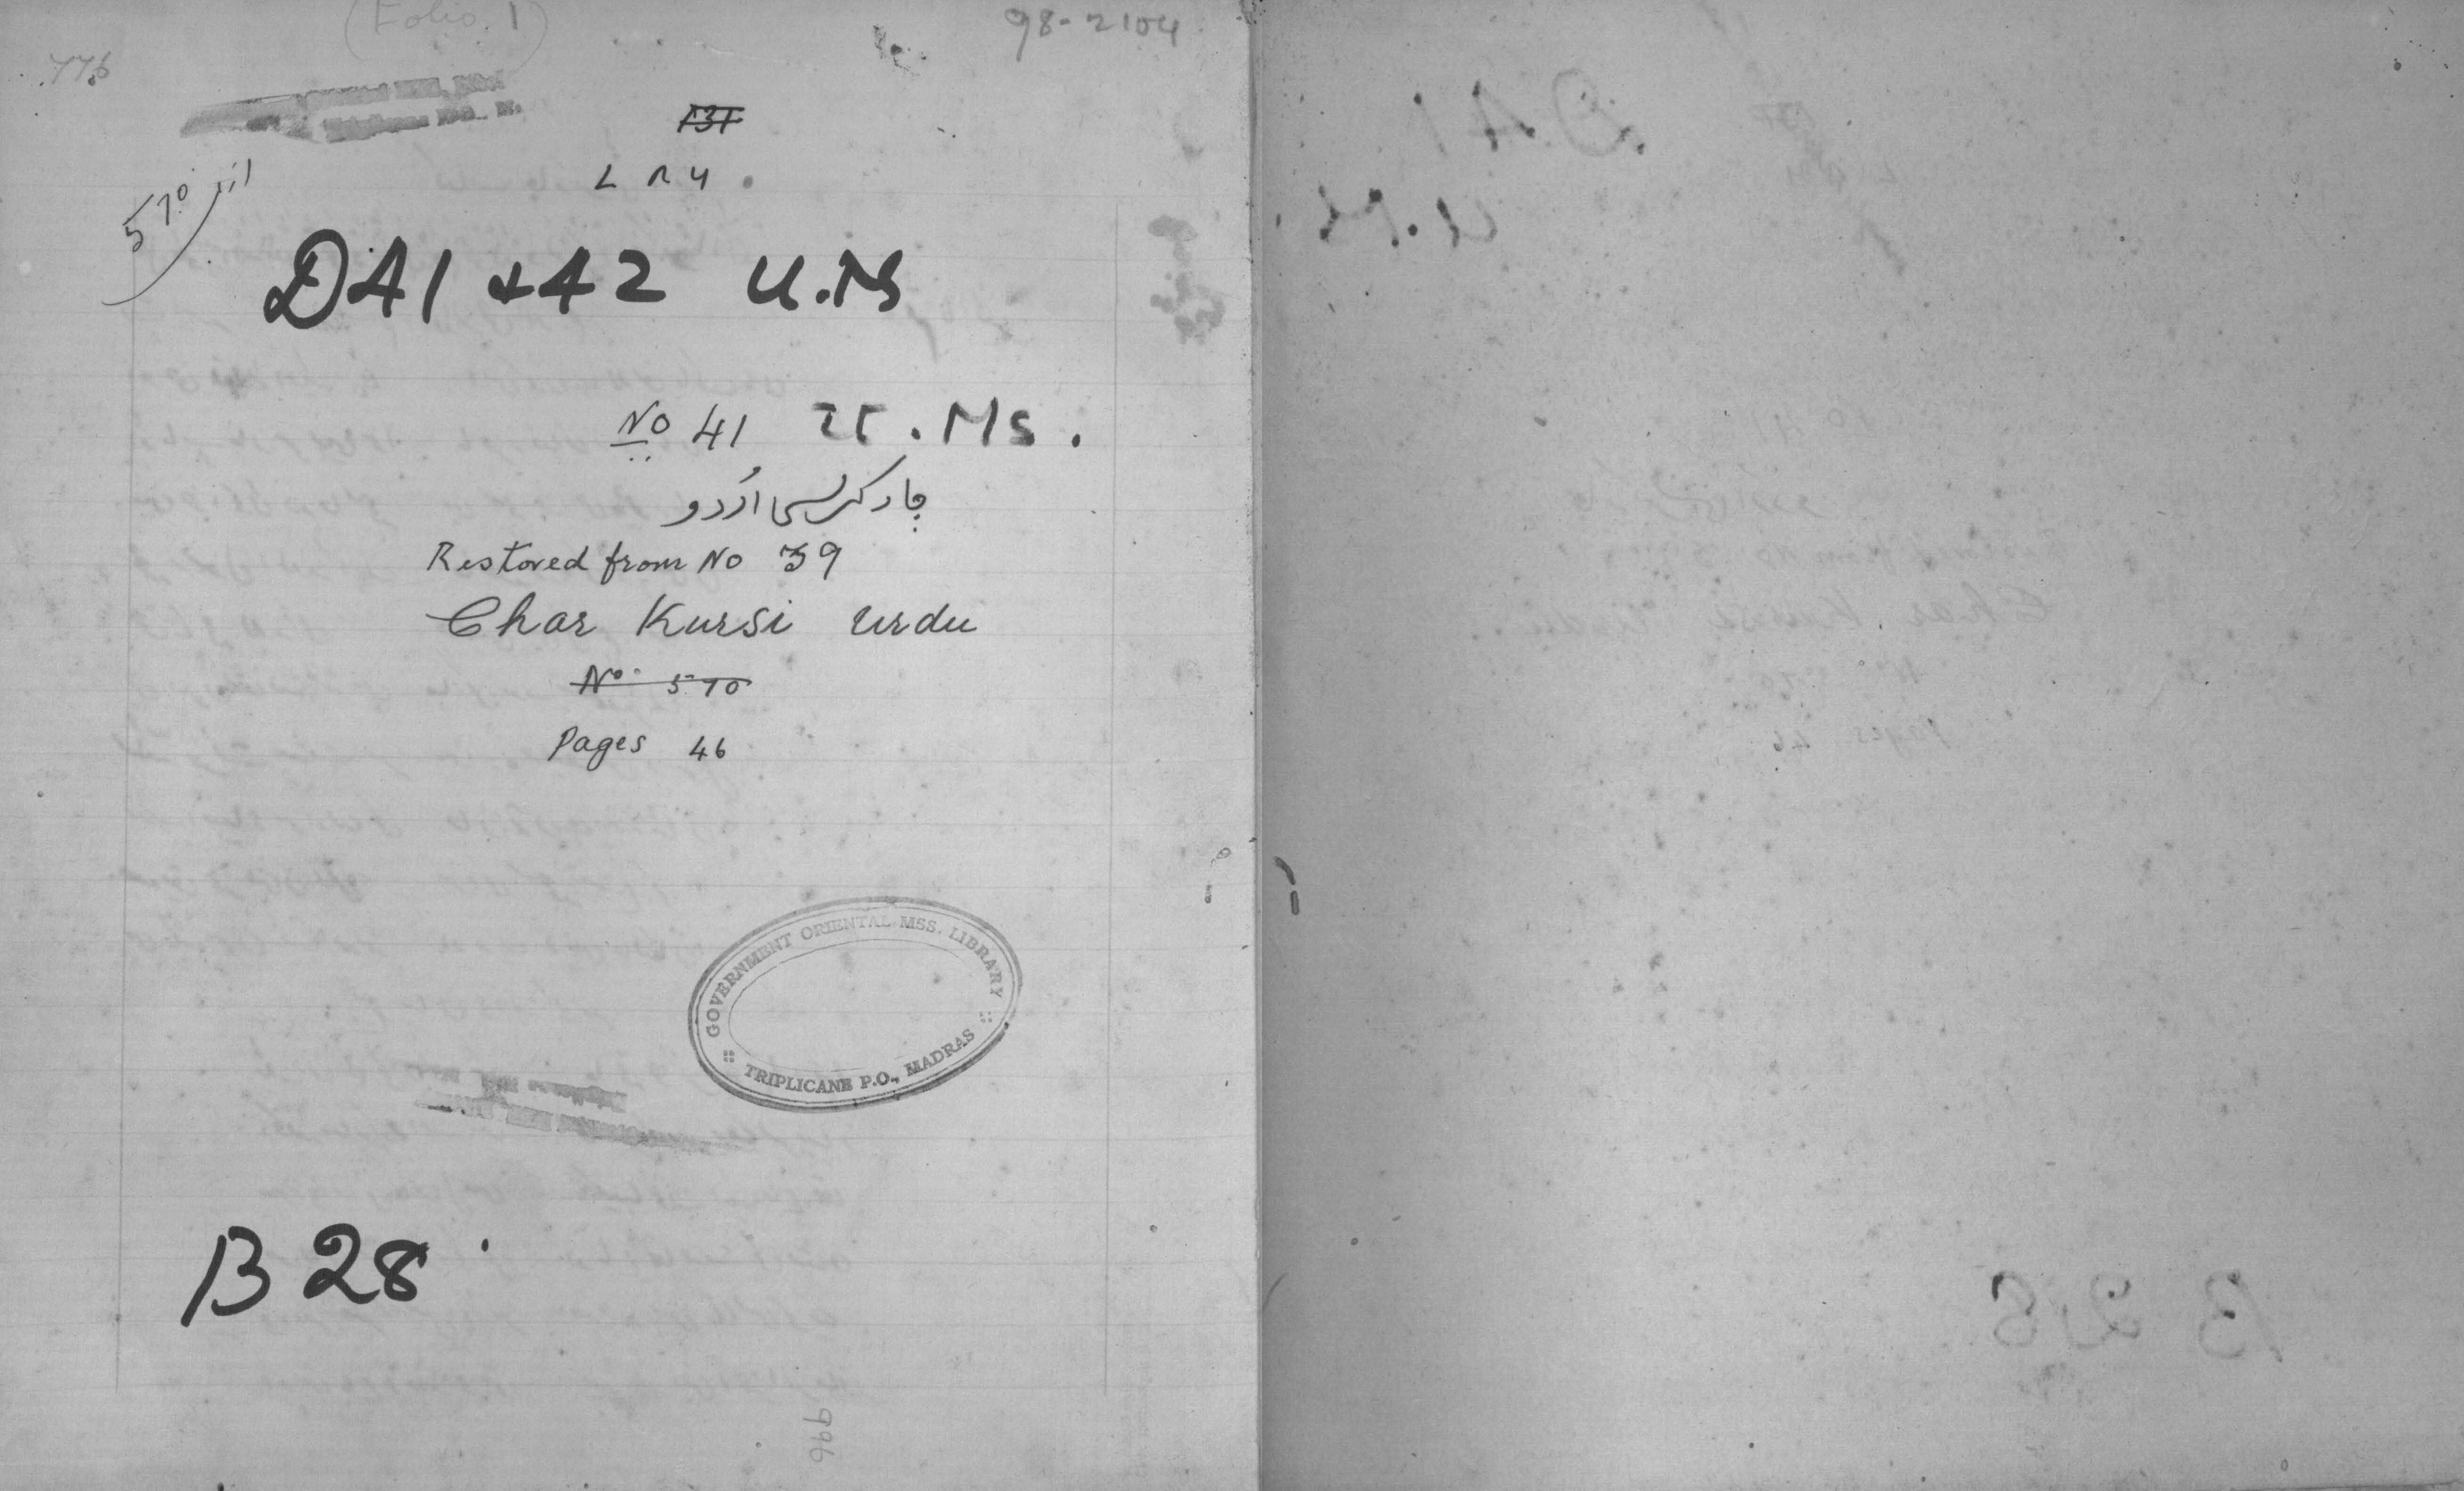 (Folio. 1)
98-2104
776
131
L R 4.
570 اردو
D41 & 42 U.MS
No 41 U.Ms.
چار کرسی اُردو
Restored from No 39
Char Kursi Urdu
No. 570
Pages 46
GOVERNMENT ORIENTAL MSS. LIBRARY
TRIPLICANE P.O., MADRAS
B 28
996